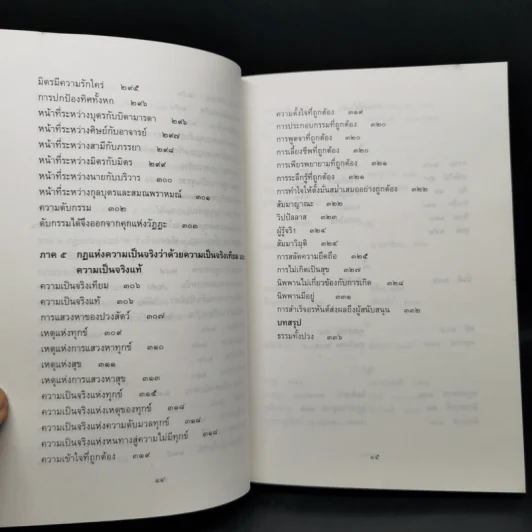 มิตรมีความรักใคร่ ๒๙๕
การปกป้องทิศทั้งหก ๒๙๖
หน้าที่ระหว่างบุตรกับบิดามารดา ๒๙๖
หน้าที่ระหว่างศิษย์กับอาจารย์ ๒๙๗
หน้าที่ระหว่างสามีกับภรรยา ๒๙๘
หน้าที่ระหว่างมิตรกับมิตร ๒๙๙
หน้าที่ระหว่างนายกับบริวาร ๓๐๐
หน้าที่ระหว่างกุลบุตรและสมณพราหมณ์ ๓๐๑
ความดับกรรม ๓๐๒
ดับกรรมได้จึงออกจากคุกแห่งวัฏฏะ ๓๐๓
ภาค ๕ กฎแห่งความเป็นจริงว่าด้วยความเป็นจริงเทียม และ
ความเป็นจริงแท้
ความเป็นจริงเทียม ๓๐๖
ความเป็นจริงแท้ ๓๐๖
การแสวงหาของปวงสัตว์ ๓๐๗
เหตุแห่งทุกข์ ๓๐๙
เหตุแห่งการแสวงหาทุกข์ ๓๑๐
เหตุแห่งสุข ๓๑๑
เหตุแห่งการแสวงหาสุข ๓๑๓
ความเป็นจริงแห่งทุกข์ ๓๑๕
ความเป็นจริงแห่งเหตุของทุกข์ ๓๑๘
ความเป็นจริงแห่งความดับมวลทุกข์ ๓๑๘
ความเป็นจริงแห่งหนทางสู่ความไม่มีทุกข์ ๓๑๘
ความเข้าใจที่ถูกต้อง ๓๑๙
๑๔
ความตั้งใจที่ถูกต้อง ๓๑๙
การประกอบกรรมที่ถูกต้อง ๓๒๐
การพูดจาที่ถูกต้อง ๓๒๐
การเลี้ยงชีพที่ถูกต้อง ๓๒๐
การเพียรพยายามที่ถูกต้อง ๓๒๑
การระลึกรู้ที่ถูกต้อง ๓๒๑
การทำใจให้ตั้งมั่นสม่ำเสมออย่างถูกต้อง ๓๒๒
สัมมาญาณะ ๓๒๒
วิปปัลลาส ๓๒๓
ผู้รู้จริง ๓๒๔
สัมมาวิมุติ ๓๒๕
การสลัดความยึดถือ ๓๒๕
การไม่เกิดเป็นสุข ๓๒๗
นิพพานไม่เกี่ยวข้องกับการเกิด ๓๒๘
นิพพานมีอยู่ ๓๓๑
การสำเร็จอรหันต์ส่งผลถึงผู้สนับสนุน ๓๓๒
บทสรุป
ธรรมทั้งปวง ๓๓๖
๑๕